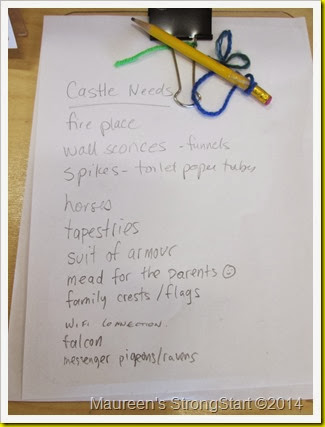 Castle Needs
fire place
wall sconces - funnels
Spikes - toilet paper tubes
horses
tapestries
suit of armour
mead for the parents ☺
family crests/flags
wifi connection.
falcon
messenger pigeons/ravens
Maureen's StrongStart ©2014